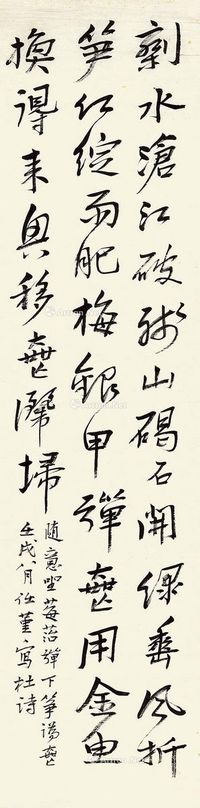 剩水滄江破殘山碣石開綠垂風折
笋紅綻雨肥梅銀甲彈無用金魚
換得来興移無灑掃
隨意坐莓苔彈下箏誤無
壬戌八月任堇〻寫杜詩